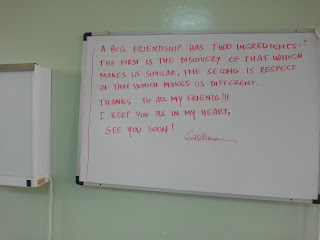 A BIG FRIENDSHIP HAS TWO INGREDIENTS:
THE FIRST IS THE DISCOVERY OF THAT WHICH
MAKES US SIMILAR, THE SECOND IS RESPECT
OF THAT WHICH MAKES US DIFFERENT.
THANKS TO ALL MY FRIENDS!!!
I KEEP YOU ALL IN MY HEART,
SEE YOU SOON!